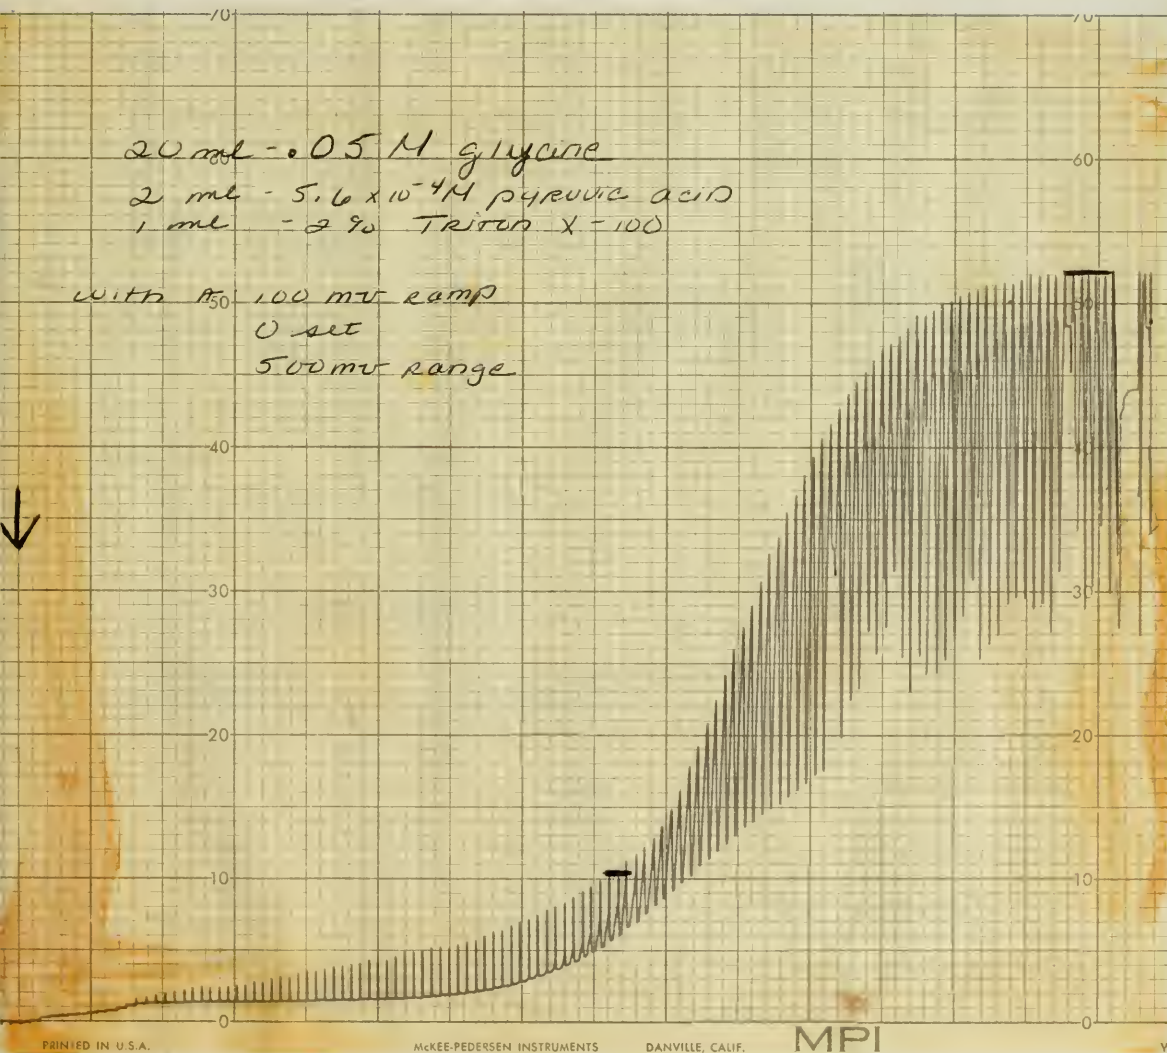 70 70
20 ml - .05 M glycine
60 60
2 ml - 5.6 x 10⁻⁴M pyruvic acid
1 ml - 2% Triton X-100
with A 100 mv ramp
50 50
0 set
500mv range
40 40
30 30
20 20
10 10
0 0
PRINTED IN U.S.A. McKEE-PEDERSEN INSTRUMENTS DANVILLE, CALIF. MPI